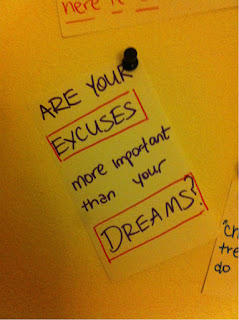 here
ARE YOUR
EXCUSES
more important
than your
DREAMS?
do